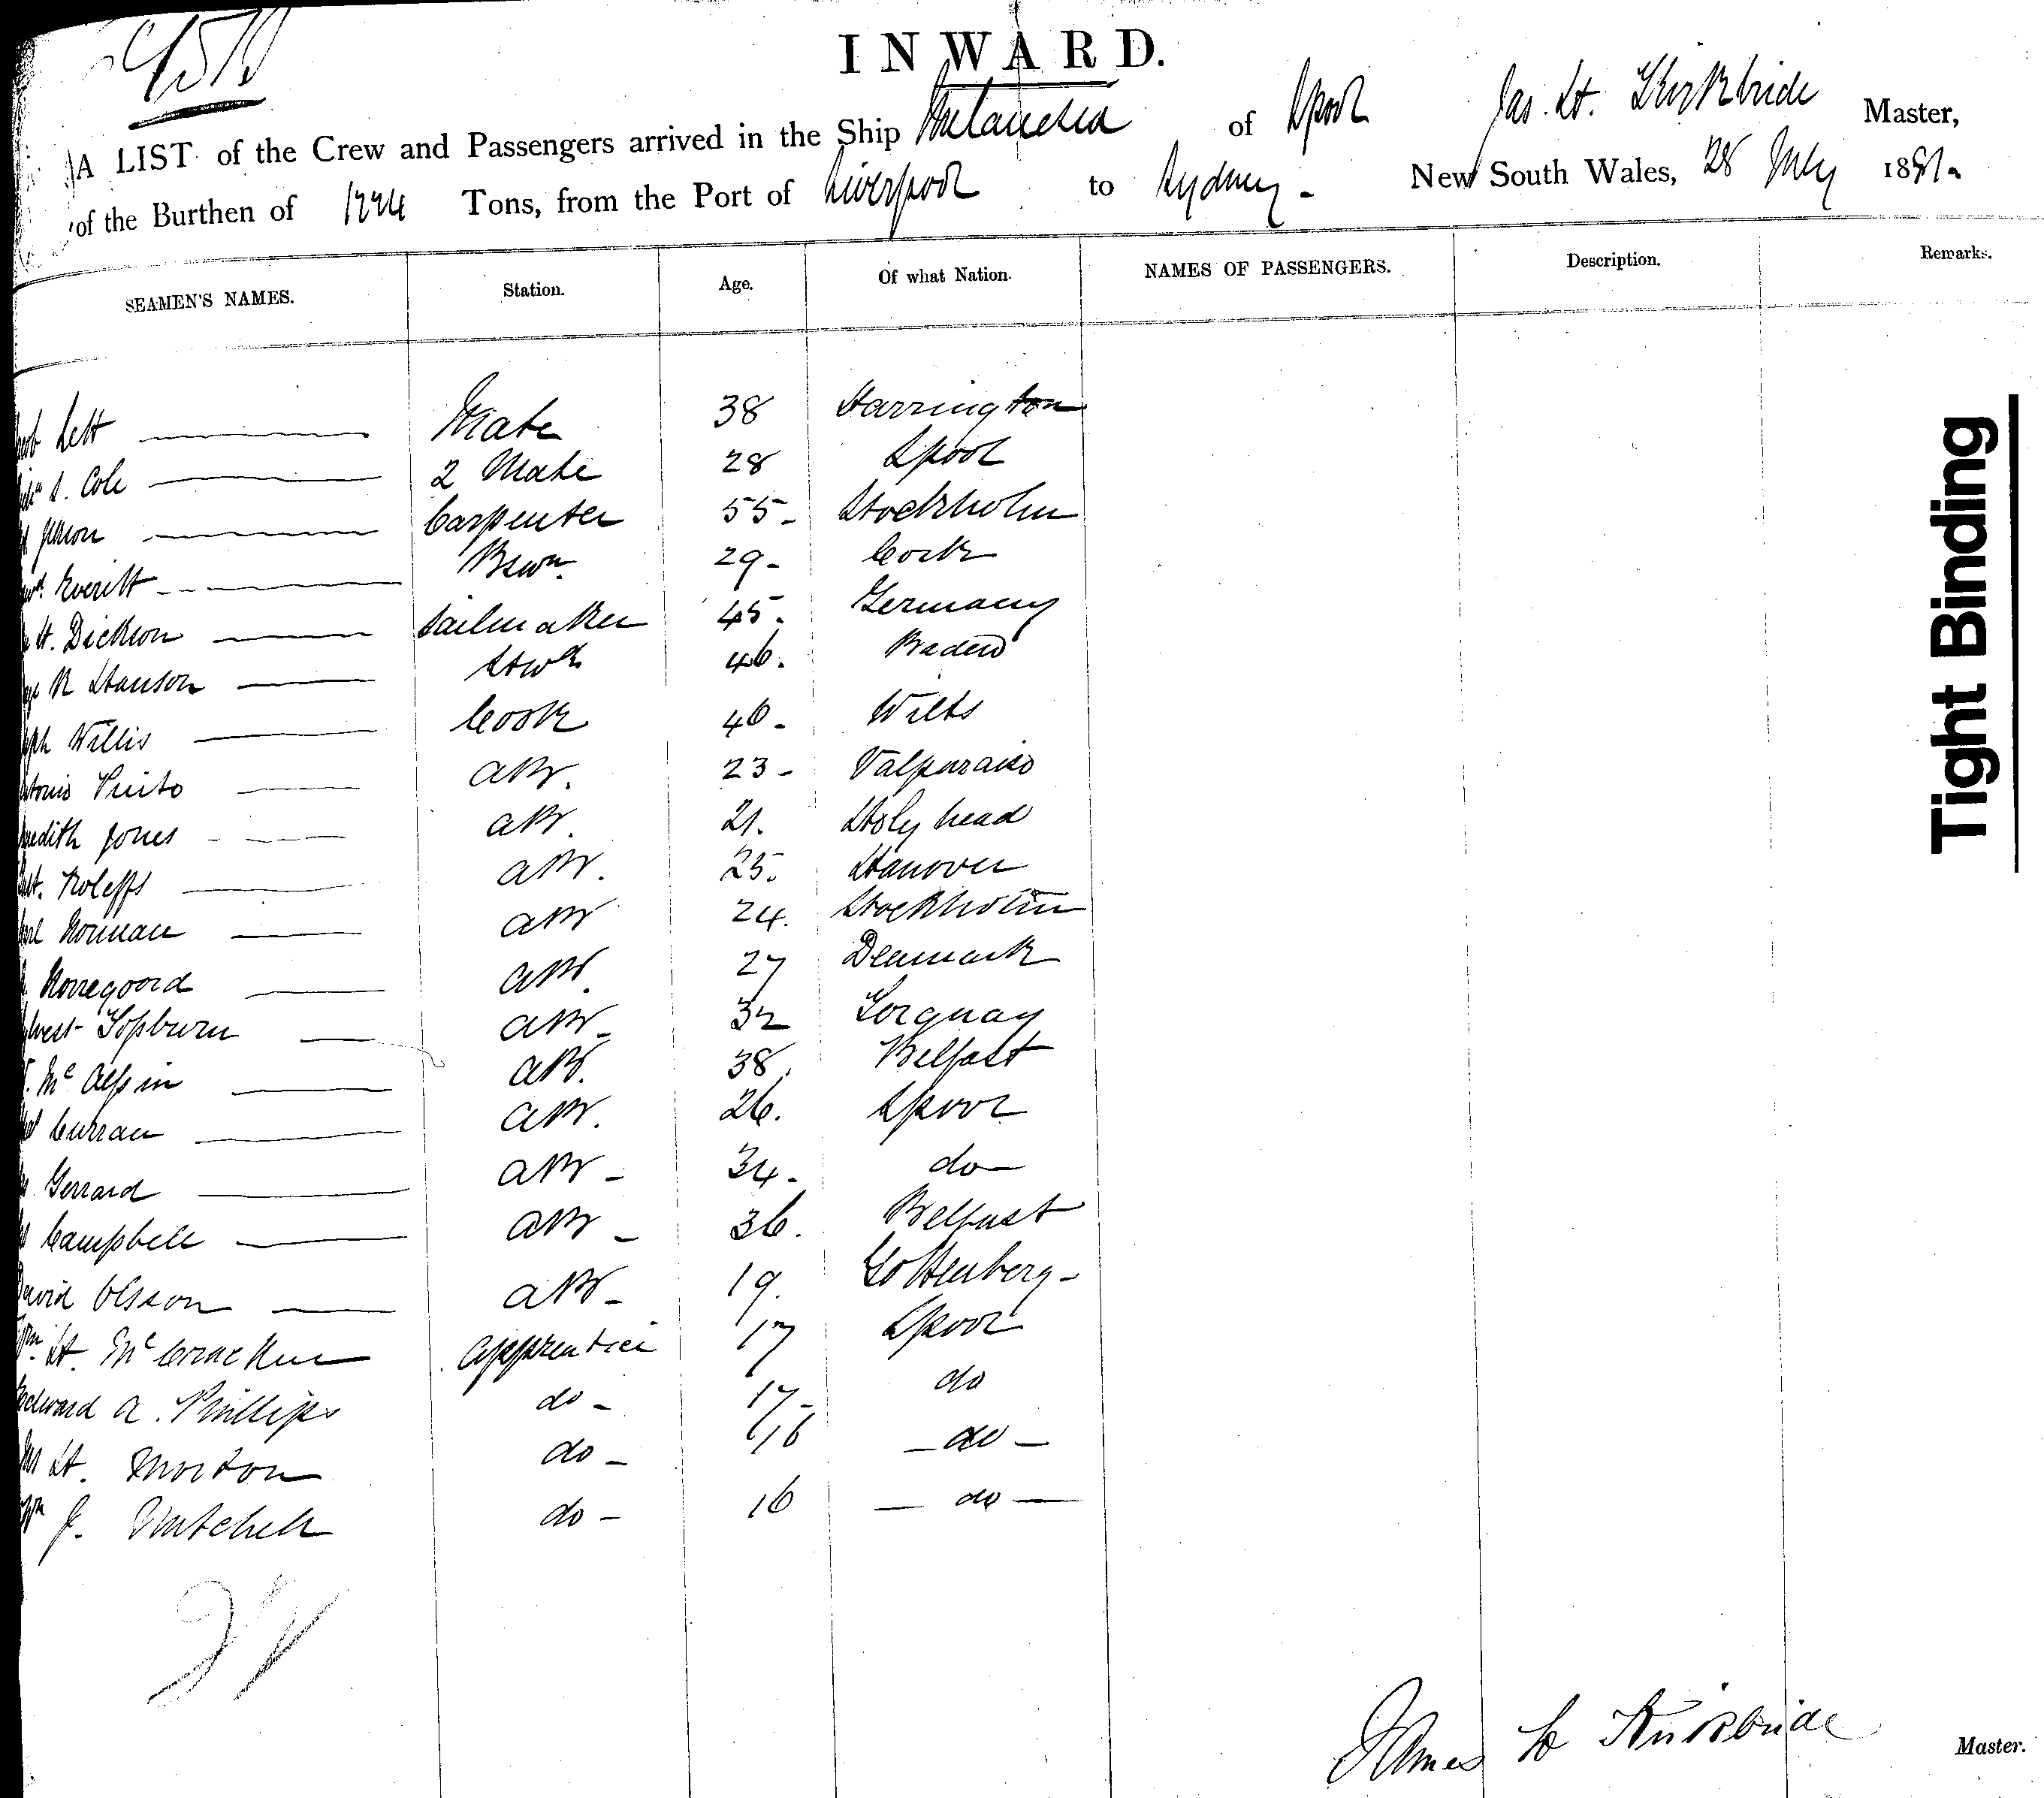 INWARD.
A LIST of the Crew and Passengers arrived in the Ship Melanesia of Lpool Jas. H. Kirkbride Master,
of the Burthen of Tons, from the Port of Liverpool to Sydney - New South Wales, 28 July 1881.
SEAMEN'S NAMES. Station. Age. Of what Nation. NAMES OF PASSENGERS. Description. Remarks.
Lett Mate 38 Harrington
S. Cole 2 Mate 28 Lpool
Carpenter 55 - Stockholm
Everitt Bswn. 29 - Cork
H. Dickson Sailmaker 45. Germany
R Hanson Stwd 46. Baden
Willis Cook 46 - Wilts
Pinto AB. 23 - Valparaiso
Jones AB. 21. Holyhead
Roleffs AB. 25. Hanover
Norman AB 24. Stockholm
Norregoord AB. 27 Denmark
Topburn AB - 32 Torquay
Mc Alpin AB. 38. Belfast
Curran AB. 26. Lpool
Gerrard AB - 34 - do
Campbell AB - 36. Belfast
David Olsson AB - 19. Gottenberg -
Wm H. McCracken Apprentice 17 Lpool
Edward A. Phillips do - 17 - do
H. Morton do - 16 - do -
Wm J. Mitchell do - 16 - do -
James H Kirkbride
Master.
Tight Binding